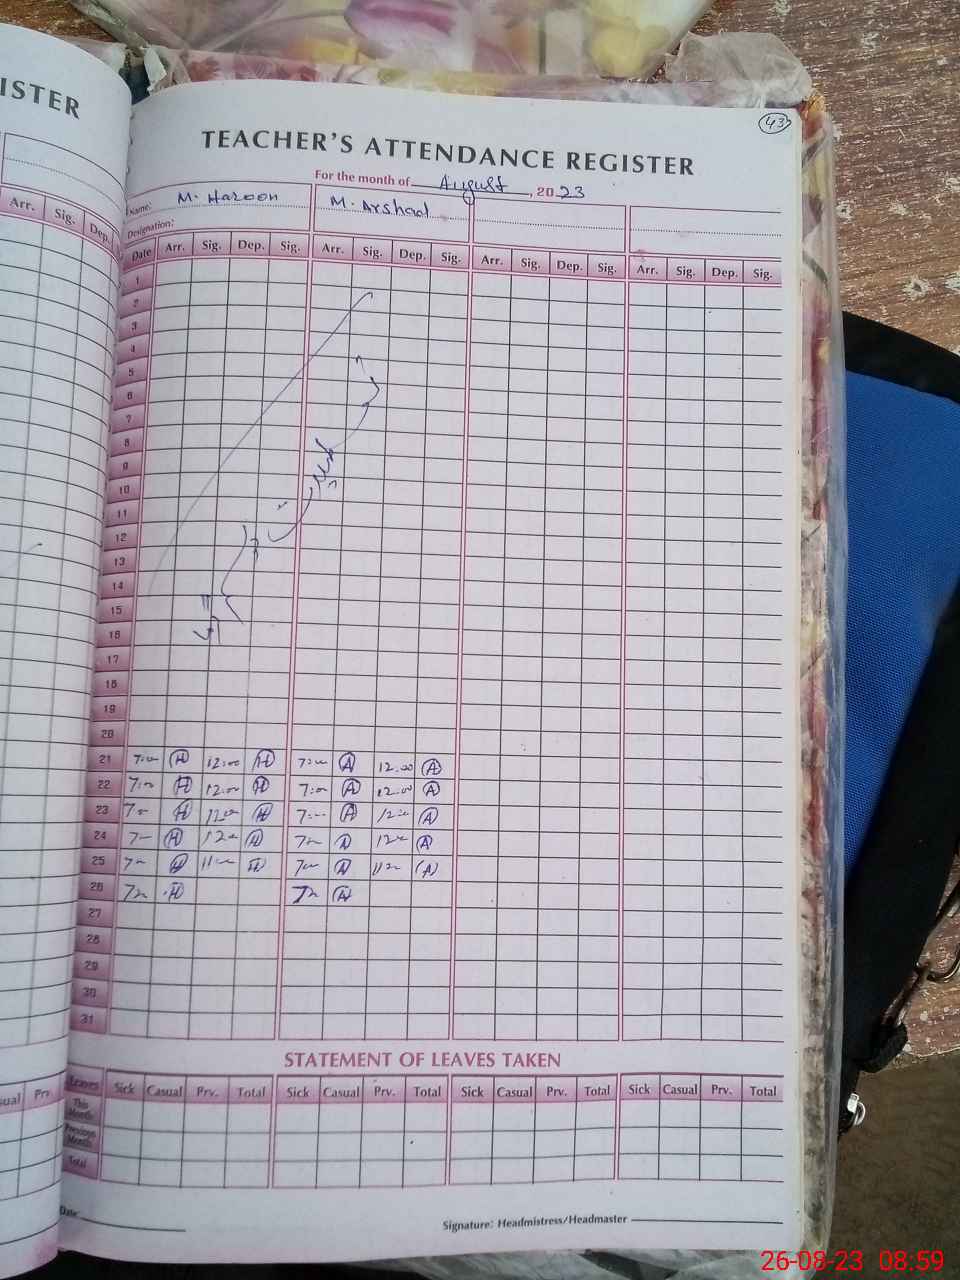 ISTER
43
TEACHER'S ATTENDANCE REGISTER
For the month of August, 2023
Name: M. Haroon M. Arshad
Designation:
Arr. Sig. Dep.
Date Arr. Sig. Dep. Sig. Arr. Sig. Dep. Sig. Arr. Sig. Dep. Sig. Arr. Sig. Dep. Sig.
1
2
3
4
5
6
7
8
9
10
11
12
13
14
15
16
17
18
19
20
21 7:00 H 12:00 H 7:00 A 12:00 A
22 7:00 H 12:00 H 7:00 A 12:00 A
23 7:00 H 12:00 H 7:00 A 12:00 A
24 7:00 H 12:00 H 7:00 A 12:00 A
25 7:00 H 11:00 H 7:00 A 11:00 A
26 7:00 H 7:00 A
27
28
29
30
31
STATEMENT OF LEAVES TAKEN
sual Prv
Leaves Sick Casual Prv. Total Sick Casual Prv. Total Sick Casual Prv. Total Sick Casual Prv. Total
This Month
Previous Month
Total
Date:
Signature: Headmistress/Headmaster
26-08-23 08:59